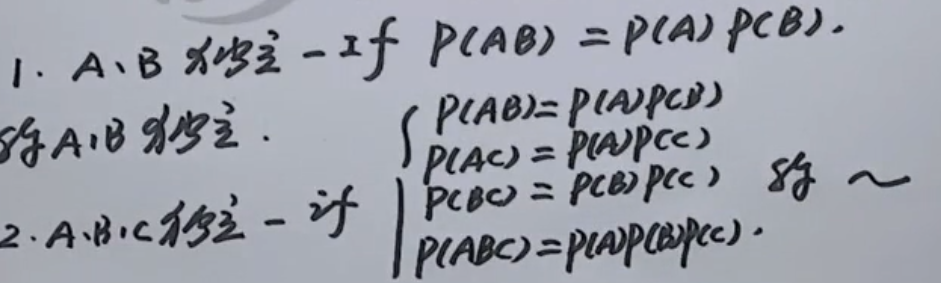 1. A、B 独立 - If P(AB) = P(A) P(B).
称 A,B 独立.
2. A.B.C 独立 - if { P(AB) = P(A)P(B)
P(AC) = P(A)P(C)
P(BC) = P(B)P(C) 称 ~
P(ABC) = P(A)P(B)P(C).